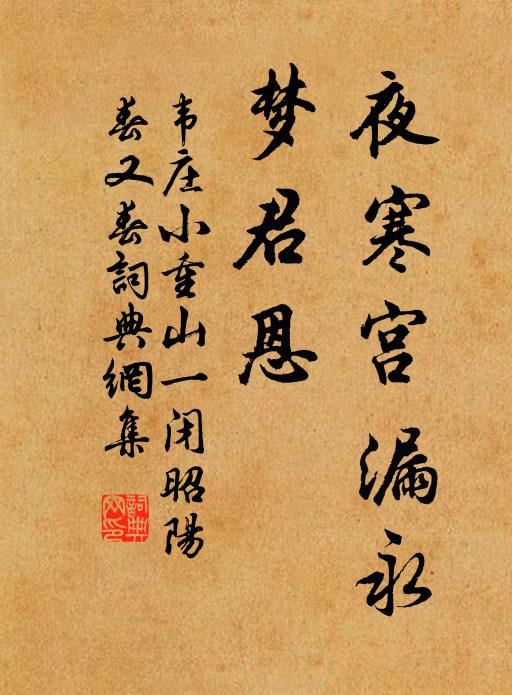 夜寒宫漏永
梦君恩
韦庄小重山一闭昭陽
春又春詞典網集
詞典
网印